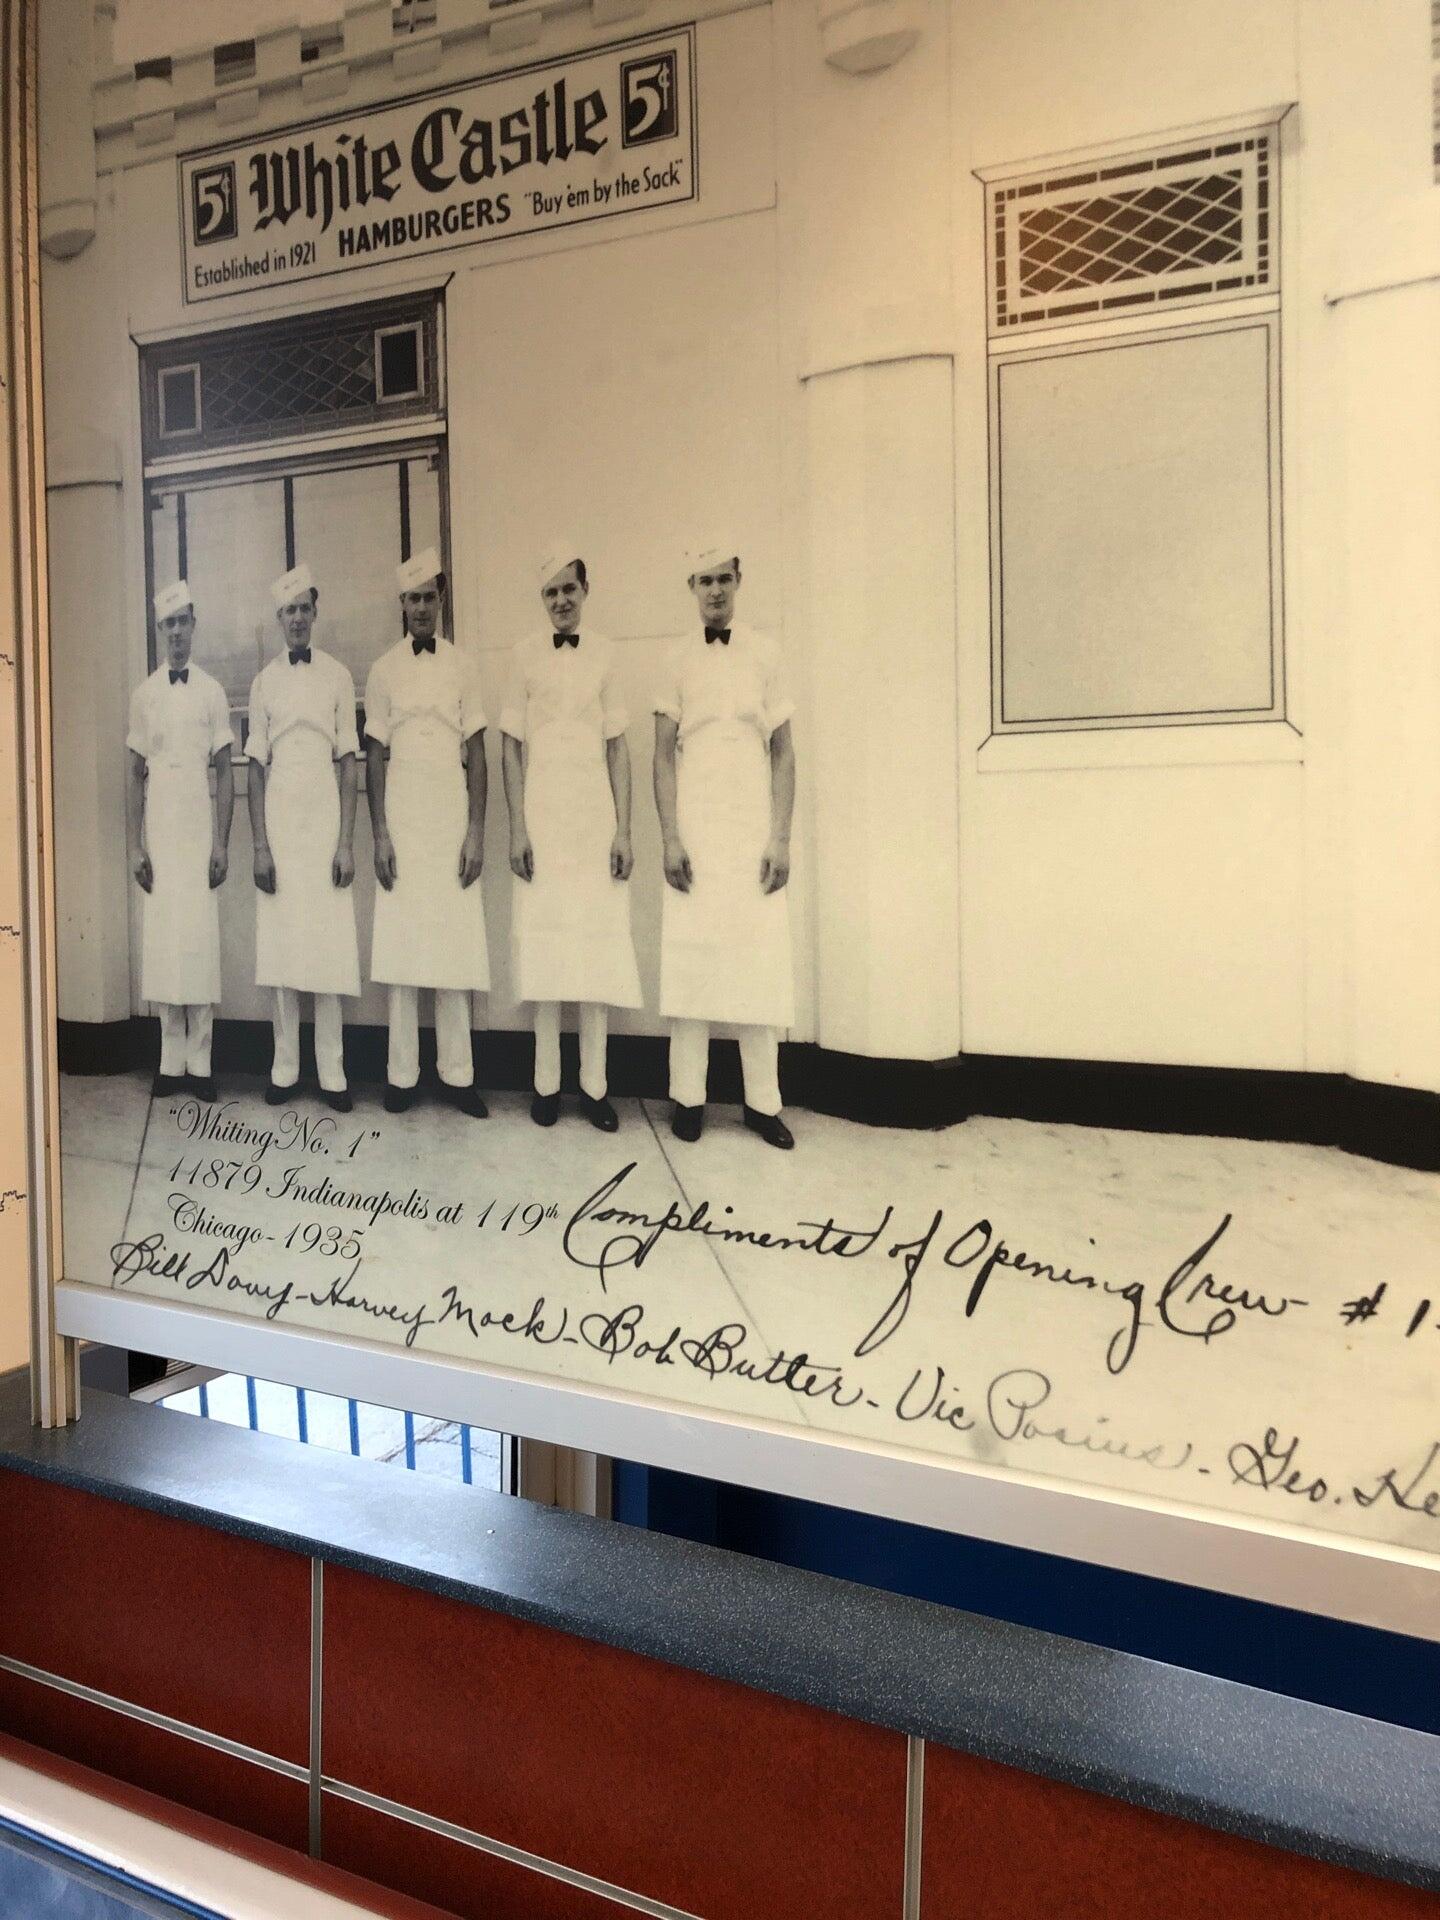 5¢ White Castle 5¢
Established in 1921 HAMBURGERS "Buy 'em by the Sack"
"Whiting No. 1"
11879 Indianapolis at 119th
Chicago - 1935
Compliments of Opening Crew - # 1.
Bill Davy - Harvey Mock - Bob Butter - Vic Posius - Geo. He